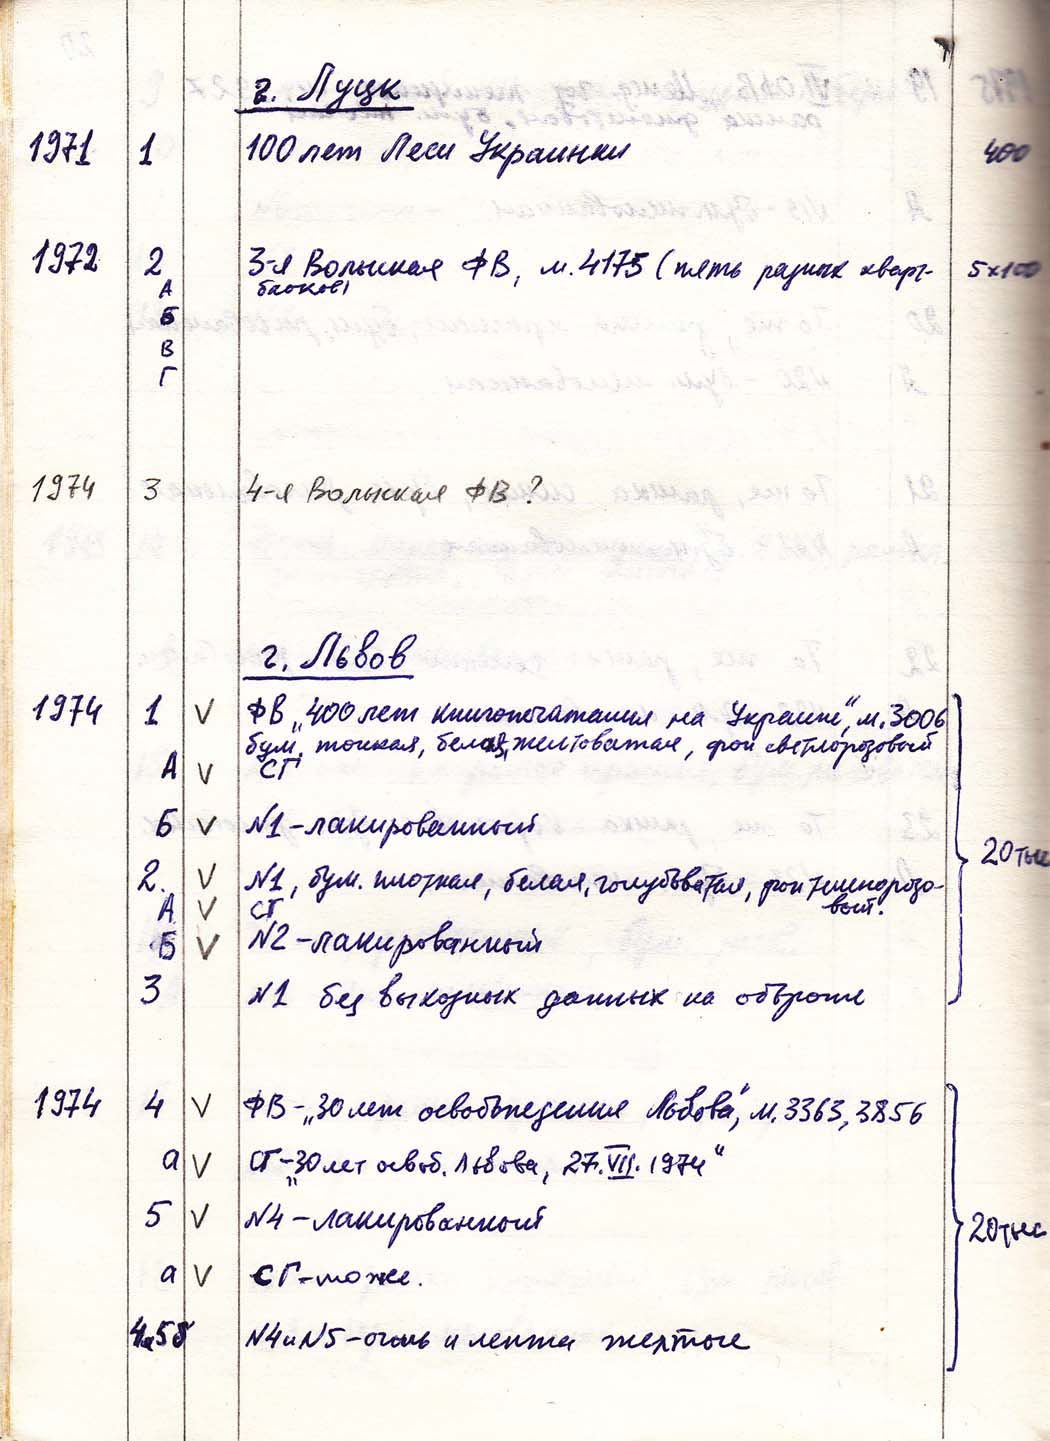 г. Луцк
1971 1 100 лет Леси Украинки 400
1972 2 3-я Волынская ФВ, м. 4175 (пять разных кварт-
блоков) 5x100
А
Б
В
Г
1974 3 4-я Волынская ФВ?
г. Львов
1974 1 V ФВ „400 лет книгопечатания на Украине", м. 3006
бум. тонкая, белая, желтоватая, фон светлорозовый
А V СГ
Б V N1 – лакированный
20 тыс
2. V N1, бум. плотная, белая, голубоватая, фон темнорозо-
вый.
А V СГ
Б V N2 – лакированный
3 N1 без выходных данных на обороте
1974 4 V ФВ – „30 лет освобождения Львова", м. 3363, 3856
а V СГ – „30 лет освоб. Львова, 27.VII.1974"
5 V N4 – лакированный
20 тыс
а V СГ – тоже.
4и5б N4 и N5 – огонь и лента желтые